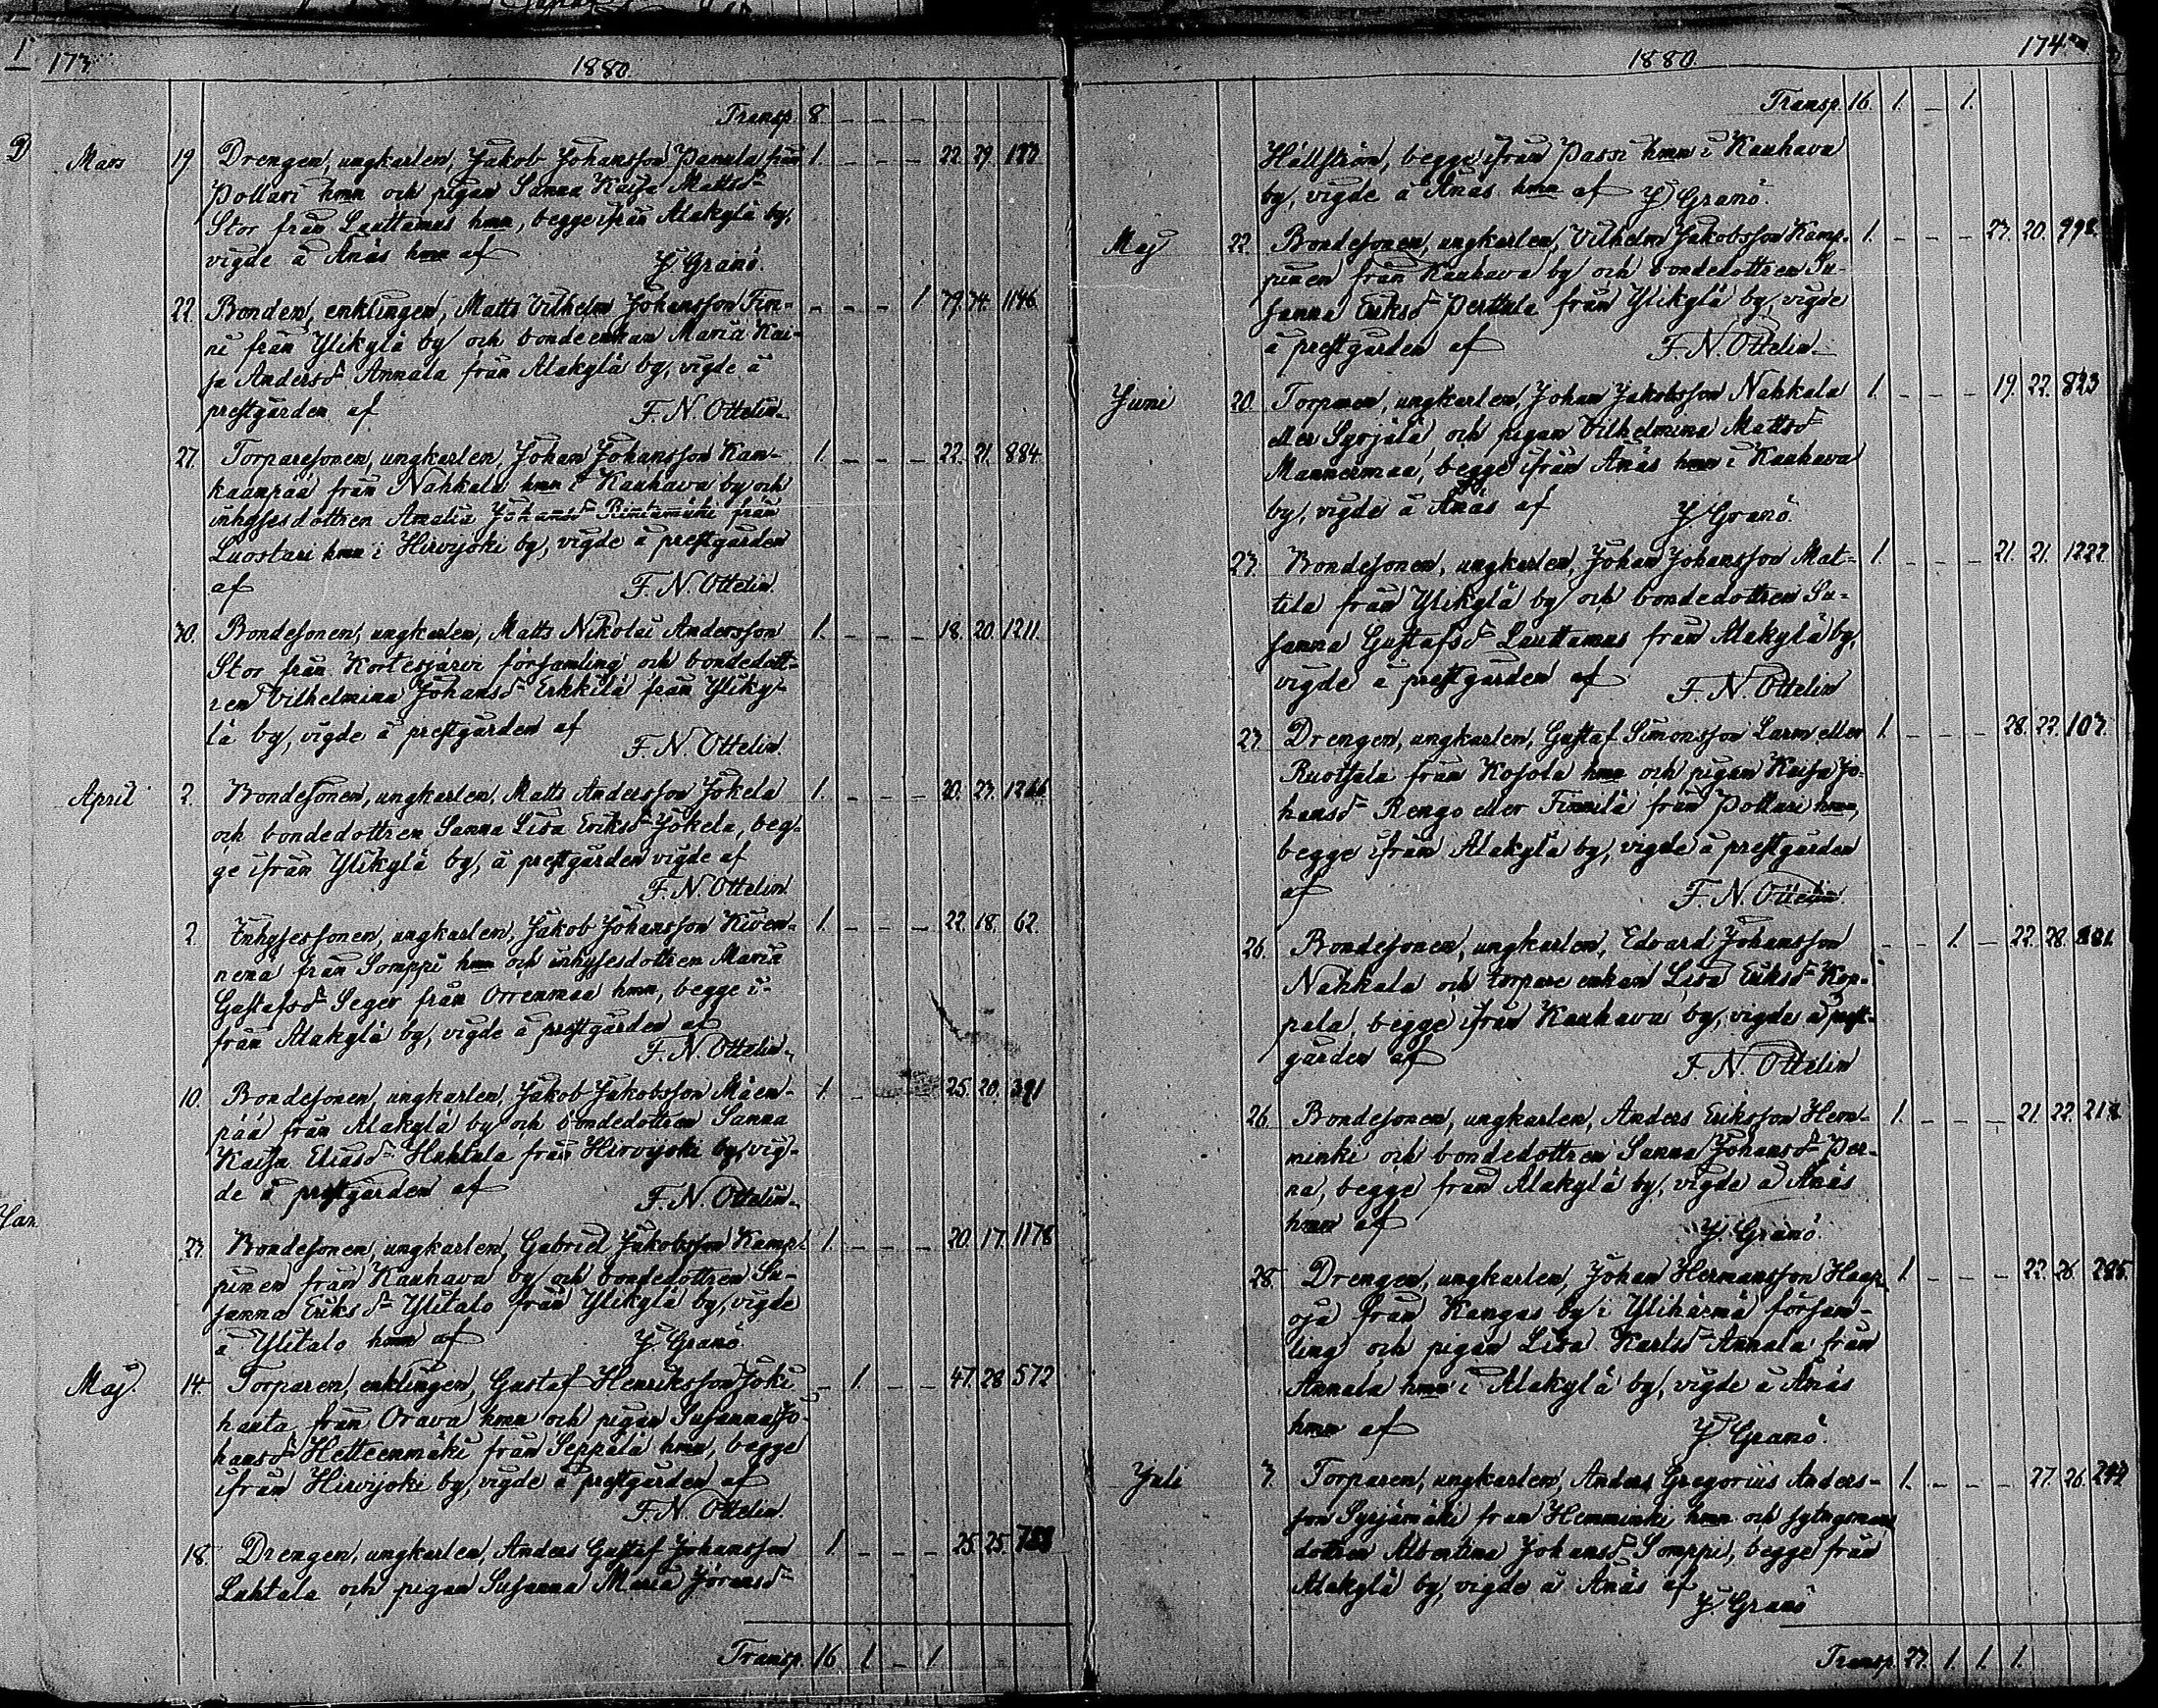 173
1880.
Transp. 8 – – –
Mars 19. Drengen, ungkarlen, Jakob Johansson Panula från 1. – – – 22. 29.
Pollari hmn och pigan Sanna Kaisa Mattsd:r
Stor från Lauttamus hmn, begge ifrån Alakylä by,
vigde å Ånäs hmn af J. Granö.
22. Bonden, enklingen, Matts Vilhelm Johansson Fin- – – – 1 39. 34. 1146
ni från Ylikylä by och bondeenkan Maria Kai-
sa Andersd:r Annala från Alakylä by, vigde å
prestgården af F. N. Ottelin.
27. Torparesonen, ungkarlen, Johan Johansson Kan- 1. – – – 22. 21. 884
kaanpää från Nahkala hmn i Kauhava by och
inhysesdottren Amalia Johansd:r Rintamäki från
Luostari hmn i Hirvijoki by, vigde å prestgården
af F. N. Ottelin.
30. Bondesonen, ungkarlen, Matts Nikolai Andersson 1. – – – 18. 20. 1211.
Stor från Kortesjärvi församling och bondedott-
ren Vilhelmina Johansd:r Erkkilä från Yliky-
lä by, vigde å prestgården af
F. N. Ottelin.
April 2. Bondesonen, ungkarlen, Matts Andersson Jokela 1. – – – 20. 23.
och bondedottren Sanna Lisa Eriksd:r Jokela, beg-
ge ifrån Ylikylä by, å prestgården vigde af
F. N. Ottelin.
2. Inhysessonen, ungkarlen, Jakob Johansson Kiven- 1. – – – 22. 18. 62.
nenä från Somppi hmn och inhysesdottren Maria
Gustafsd:r Seger från Orrenmaa hmn, begge i-
från Alakylä by, vigde å prestgården af
F. N. Ottelin.
10. Bondesonen, ungkarlen, Jakob Jakobsson Mäen- 1. – 25. 20. 391
pää från Alakylä by och bondedottren Sanna
Kaisa Eliasd:r Huhtala från Hirvijoki by, vig-
de å prestgården af F. N. Ottelin.
23. Bondesonen, ungkarlen, Gabriel Jakobsson Kamp- 1. – – – 20. 17. 1178
pinen från Kauhava by och bondedottren Su-
sanna Eriksd:r Ylitalo från Ylikylä by, vigde
å Ylitalo hmn af J. Granö.
Maj. 14. Torparen, enklingen, Gustaf Henriksson Joki- – 1. – – 47. 28. 572
hauta från Orava hmn och pigan Susanna Jo-
hansd:r Hetteenmäki från Seppälä hmn, begge
ifrån Hirvijoki by, vigde å prestgården af
F. N. Ottelin.
18. Drengen, ungkarlen, Anders Gustaf Johansson 1. – – – 25. 25.
Luhtala och pigan Susanna Maria Jöransd:r
Transp. 16 1. – 1
174
1880.
Transp. 16. 1. – 1.
Hällström, begge ifrån Passi hmn i Kauhava
by, vigde å Ånäs hmn af J. Granö.
Maj 22. Bondesonen, ungkarlen, Vilhelm Jakobsson Kamp- 1. – – – 23. 20. 998.
pinen från Kauhava by och bondedottren Su-
sanna Eriksd:r Perttula från Ylikylä by, vigde
å prestgården af F. N. Ottelin.
Juni 20. Torparen, ungkarlen, Johan Jakobsson Nahkala 1. – – – 19. 22. 823
eller Syrjälä och pigan Vilhelmina Mattsd:r
Mannermaa, begge ifrån Ånäs hmn i Kauhava
by, vigde å Ånäs af J. Granö.
23. Bondesonen, ungkarlen, Johan Johansson Mat- 1. – – – 21. 21. 1222.
tila från Ylikylä by och bondedottren Su-
sanna Gustafsd:r Lauttamus från Alakylä by,
vigde å prestgården af F. N. Ottelin
23. Drengen, ungkarlen, Gustaf Simonsson Larm eller 1. – – – 28. 22. 103.
Ruotsala från Kosola hmn och pigan Kaisa Jo-
hansd:r Rengo eller Finnilä från Pollari hmn,
begge ifrån Alakylä by, vigde å prestgården
af F. N. Ottelin.
26. Bondesonen, ungkarlen, Edvard Johansson – – 1. – 22. 28.
Nahkala och torpare enkan Lisa Eriksd:r Kop-
pala, begge ifrån Kauhava by, vigde å prest-
gården af F. N. Ottelin
26. Bondesonen, ungkarlen, Anders Eriksson Hem- 1. – – – 21. 22. 218.
minki och bondedottren Sanna Johansd:r Per-
na, begge från Alakylä by, vigde å Ånäs
hmn af J. Granö.
28. Drengen, ungkarlen, Johan Hermansson Haap- 1. – – – 22. 26. 285.
oja från Kangas by i Ylihärmä försam-
ling och pigan Lisa Karlsd:r Annala från
Annala hmn i Alakylä by, vigde å Ånäs
hmn af J. Granö.
Juli 3. Torparen, ungkarlen, Anders Gregorius Anders- 1. – – – 27. 26.
son Syrjämäki från Hemminki hmn och sytngsmans
dottren Albertina Johansd:r Somppi, begge från
Alakylä by, vigde å Ånäs af
J. Granö
Transp. 23. 1. 1. 1.